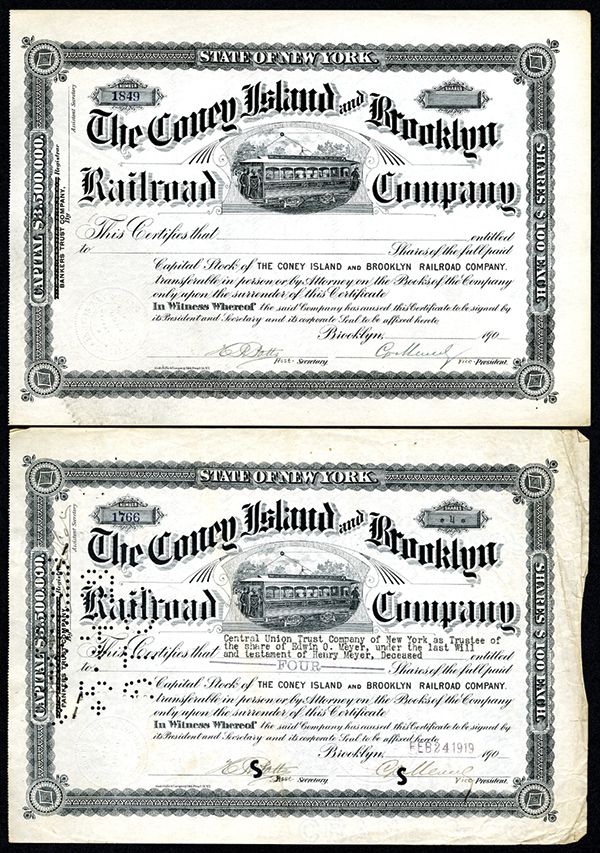 STATE OF NEW YORK.
NUMBER
1849
SHARES
Assistant Secretary
The Coney Island and Brooklyn
Railroad Company
CAPITAL $3,500,000.
BANKERS TRUST COMPANY, Registrar
By
SHARES $100 EACH.
This Certifies that entitled
to Shares of the full paid
Capital Stock of THE CONEY ISLAND AND BROOKLYN RAILROAD COMPANY.
transferable in person or by Attorney on the Books of the Company
only upon the surrender of this Certificate
In Witness Whereof the said Company has caused this Certificate to be signed by
its President and Secretary and its corporate Seal to be affixed hereto
Brooklyn, 190
Asst. Secretary Vice President.
STATE OF NEW YORK.
NUMBER
1766
SHARES
- 4 -
Assistant Secretary
The Coney Island and Brooklyn
Railroad Company
CAPITAL $3,500,000.
BANKERS TRUST COMPANY,
SHARES $100 EACH.
Central Union Trust Company of New York as Trustee of
the share of Edwin O. Meyer, under the last Will
This Certifies that and testament of Henry Meyer, Deceased entitled
to FOUR Shares of the full paid
Capital Stock of THE CONEY ISLAND AND BROOKLYN RAILROAD COMPANY.
transferable in person or by Attorney on the Books of the Company
only upon the surrender of this Certificate
In Witness Whereof the said Company has caused this Certificate to be signed by
its President and Secretary and its corporate Seal to be affixed hereto
Brooklyn, FEB 24 1919 190
S S
Asst. Secretary Vice President.